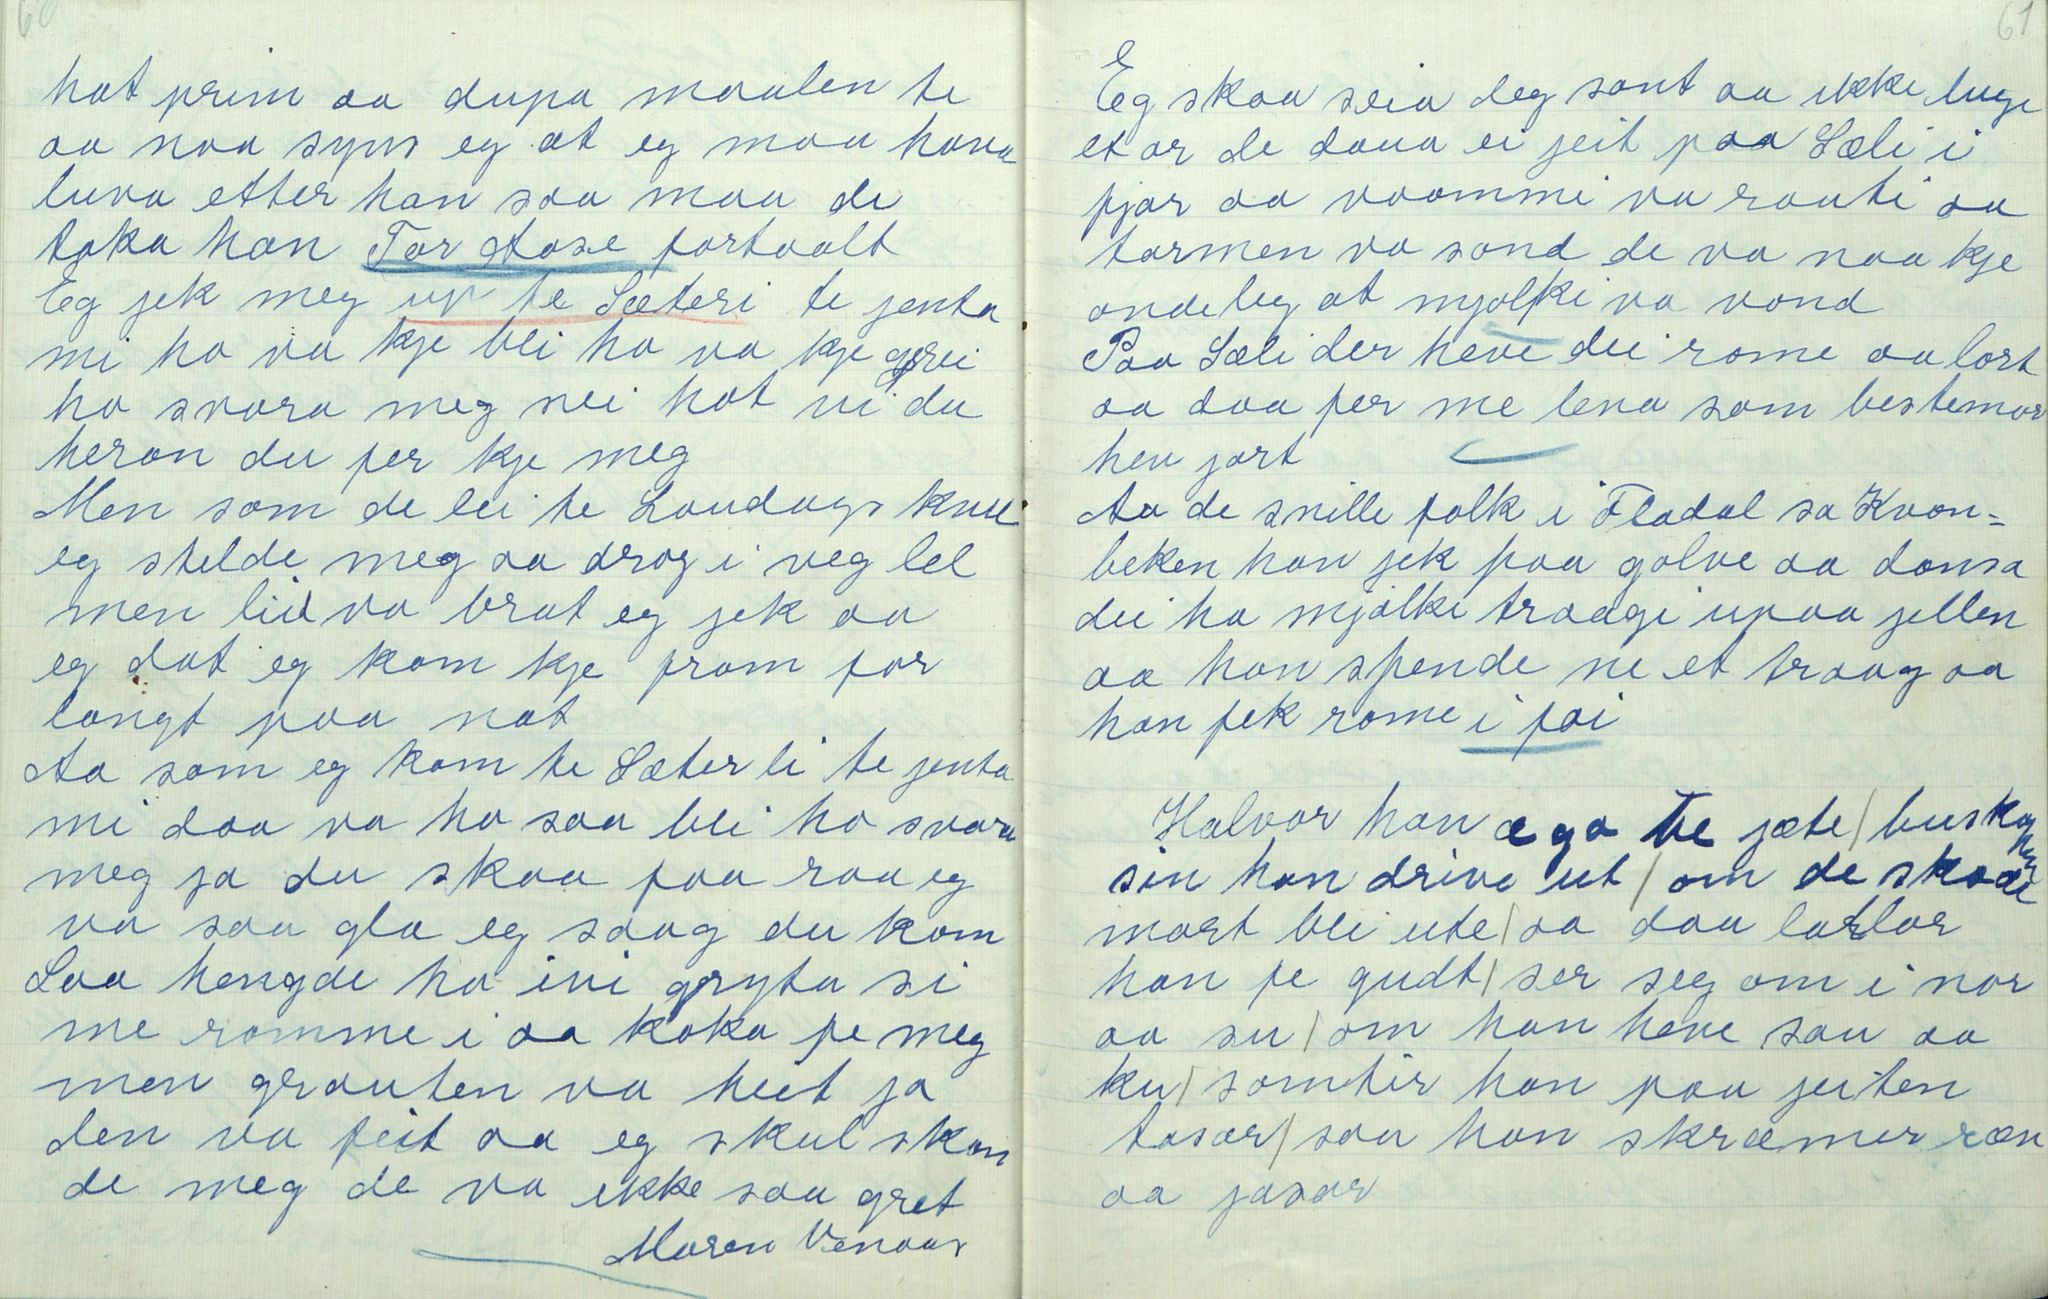 60
hot prim aa dupa maalen te
aa naa syns eg at eg maa hava
luva etter han saa maa de
taka han Tor Aase fortaalt
Eg jek meg up te Sæteri te jenta
mi ho va kje bli ho va kje grei
ho svara meg nei hot vi du
heran du fer kje meg
Men som de lei te Laudags kvel
eg stelde meg aa drog i veg lel
men lid va brat eg jek aa
eg dat eg kom kje fram for
langt paa nat
Aa som eg kom te Sæterli te jenta
mi daa va ho saa bli ho svara
meg ja du skaa faa raa eg
va saa gla eg saag du kom
Saa hengde ho ivi gryta si
me romme i aa koka fe meg
men grauten va heit ja
den va feit aa eg skul skon
de meg de va ikke saa gret
Maren Venaas
61
Eg skaa seia deg sant aa ikke luge
et ar de daua ei jeit paa Sæli i
fjor aa vaommi va rauti aa
tarmen va sond de va naa kje
ondeleg at mjølki va vond
Paa Sæli der heve dei rome aa lort
aa daa fer me leva som bestemor
hev jort
Aa de snille folk i Fladal sa Kvan=
beken han jek paa golve aa dansa
dei ha mjølki traagi upaa jellen
aa han spende ne et traag aa
han fek rome i fai
Halvor han æ go te jæte / buskapen
sin han drive ut / om de skaae
mart bli ute / aa daa lar lar
han fe gudt / ser seg om i nor
aa su / om han heve sau aa
ku / somtir han paa jeiten
tasar / saa han skræmer ræn
aa jasar